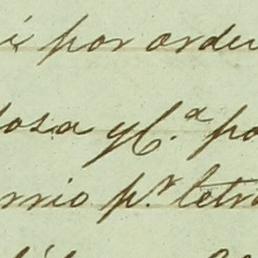 i por orden
losa y C.ª po
rnio p.r letra